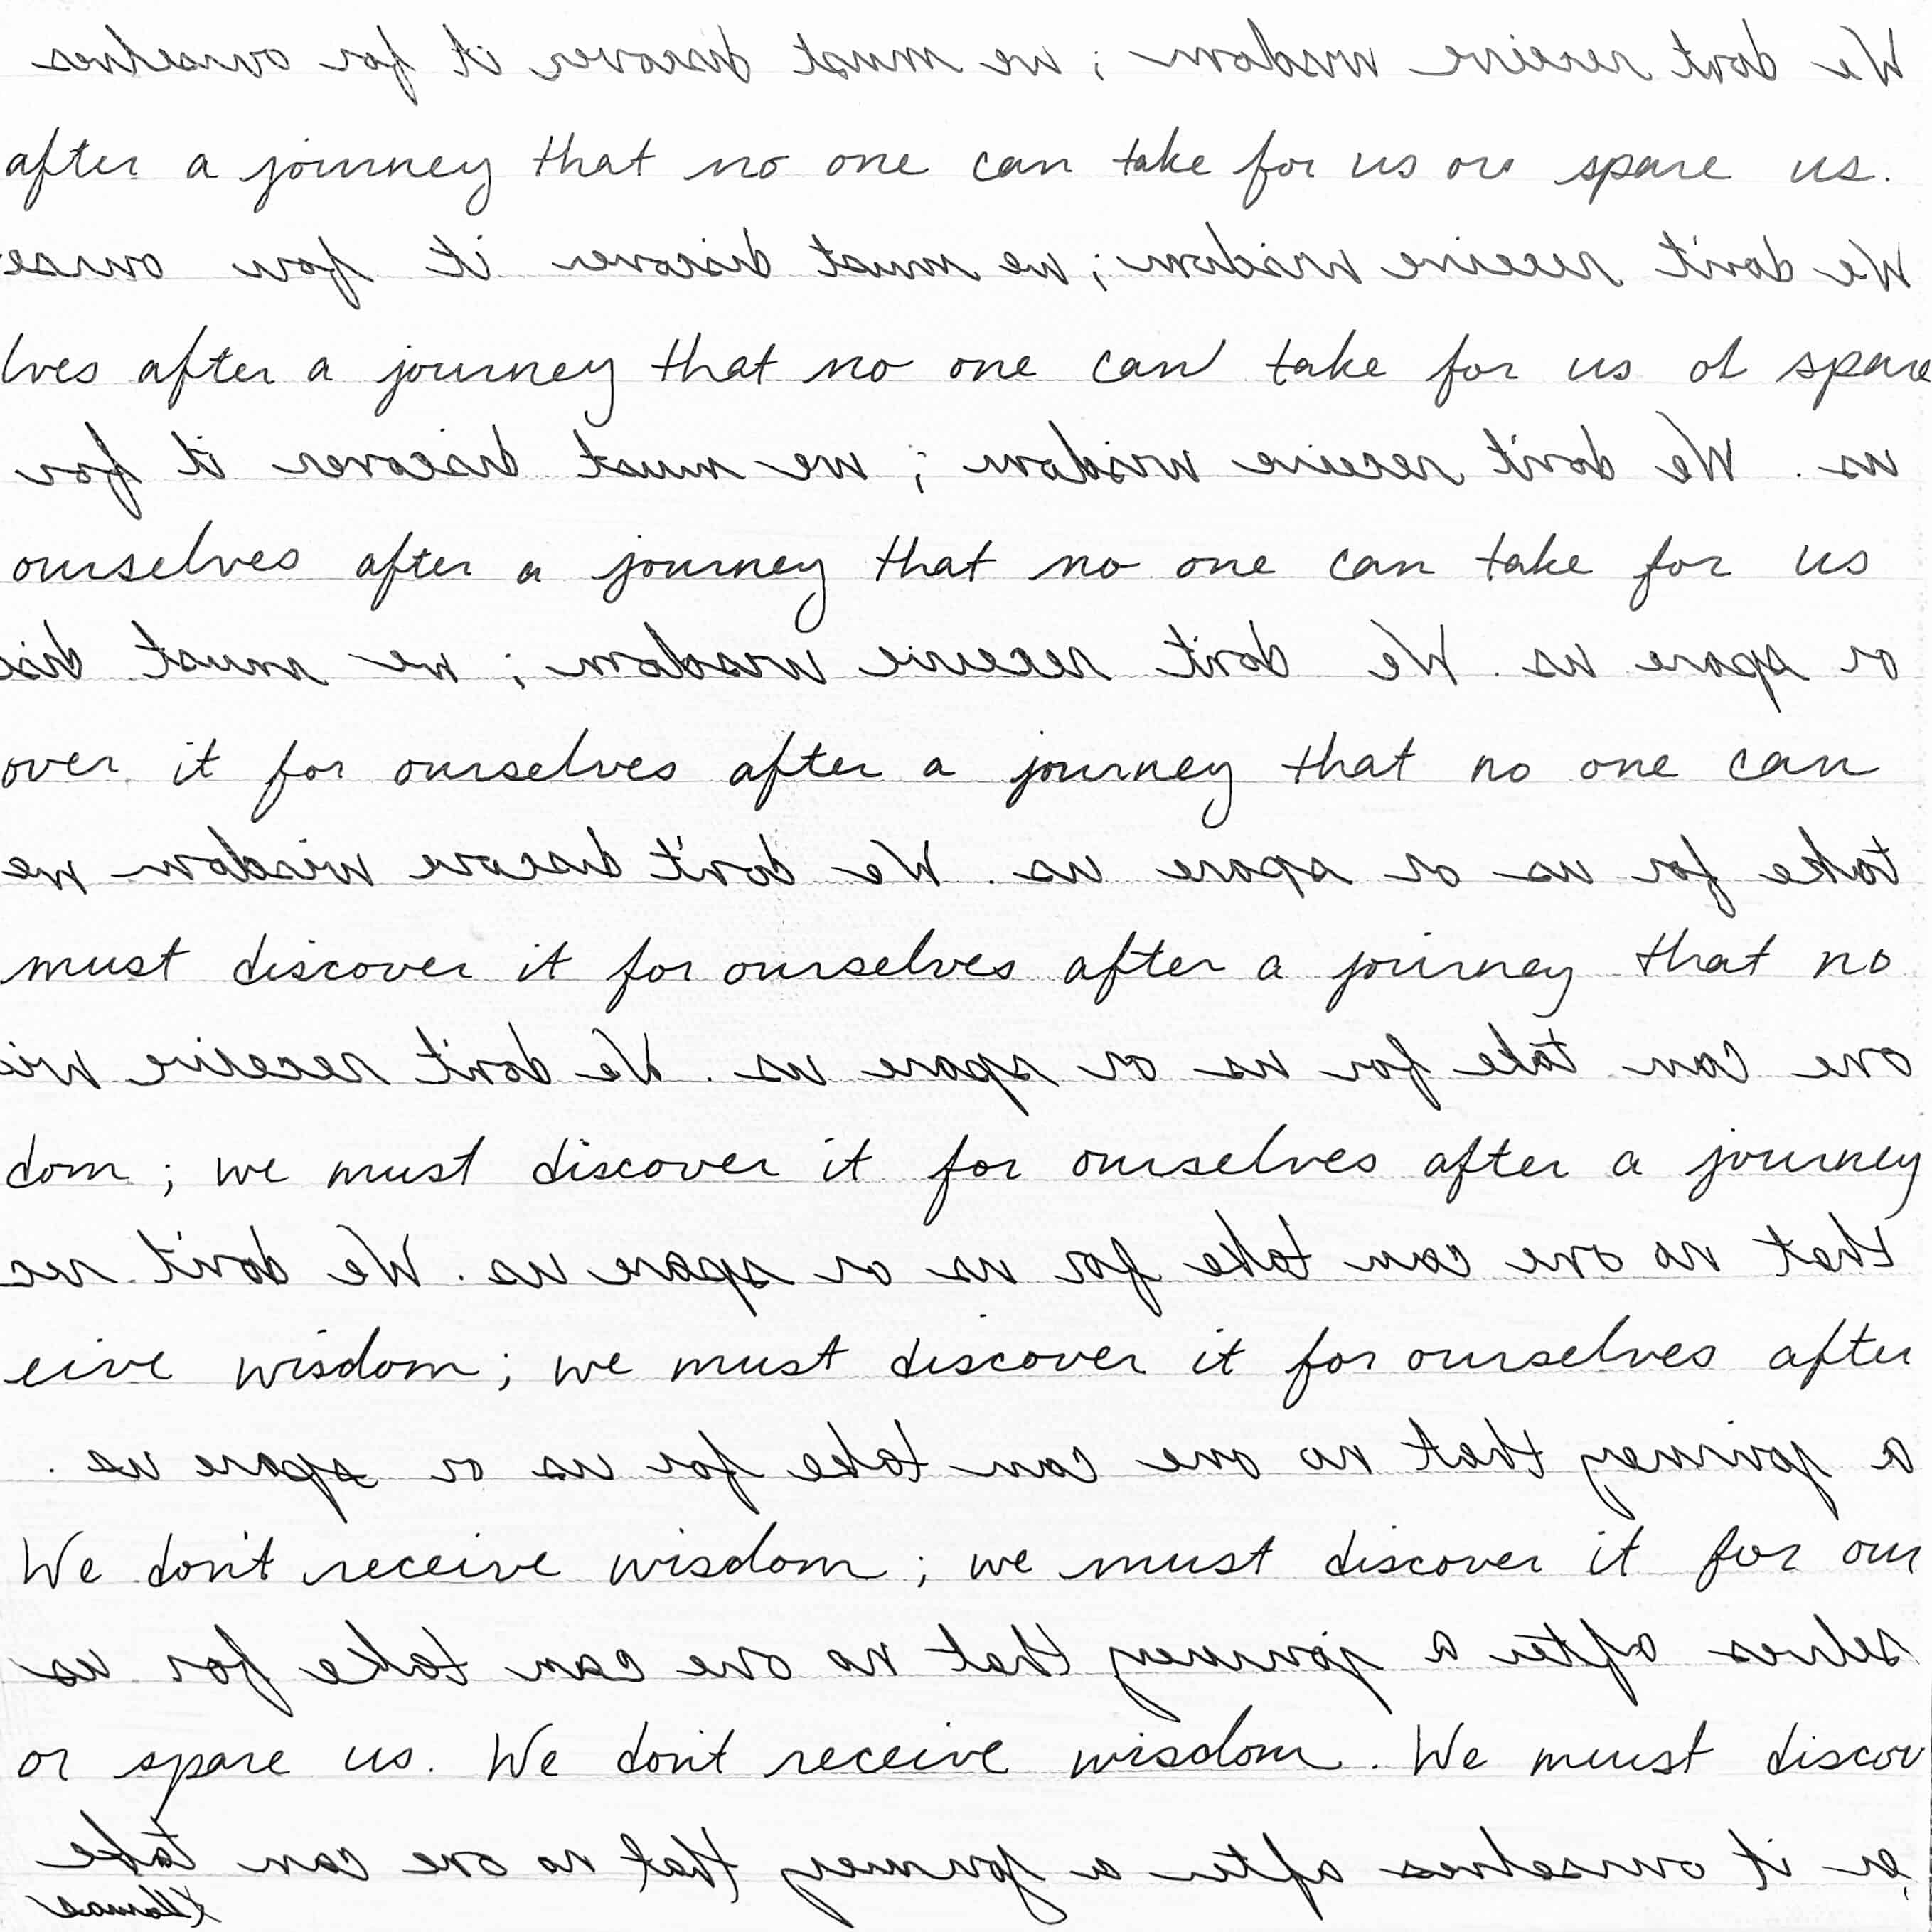 We don't receive wisdom; we must discover it for ourselves
after a journey that no one can take for us or spare us.
We don't receive wisdom; we must discover it for ourse
lves after a journey that no one can take for us or spare
us. We don't receive wisdom; we must discover it for
ourselves after a journey that no one can take for us
or spare us. We don't receive wisdom; we must disc
over it for ourselves after a journey that no one can
take for us or spare us. We don't discover wisdom we
must discover it for ourselves after a journey that no
one can take for us or spare us. We don't receive wi
dom; we must discover it for ourselves after a journey
that no one can take for us or spare us. We don't rec
eive wisdom; we must discover it for ourselves after
a journey that no one can take for us or spare us.
We don't receive wisdom; we must discover it for our
selves after a journey that no one can take for us
or spare us. We don't receive wisdom. We must discov
er it ourselves after a journey that no one can take